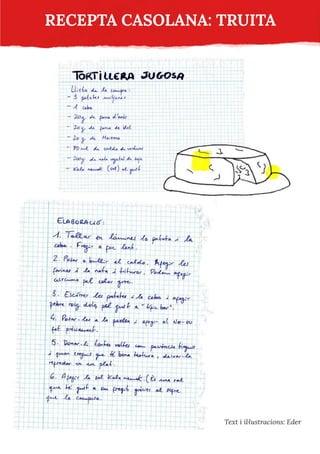 RECEPTA CASOLANA: TRUITA
TORTILLERA JUGOSA
Llista de la compra:
- 3 patates mitjanes
- 1 ceba
- 20g. de farina d'arròs
- 20g. de farina de blat
- 20g. de Maizena
- 80 ml de caldo de verdures
- 200g de nata vegetal de soja
- Kala namak (sal) al gust
ELABORACIÓ:
1. Tallar en làmines la patata i la
ceba. Fregir a foc lent.
2. Posar a bullir el caldo. Afegir les
farines i la nata i triturar. Podem afegir
cúrcuma pel color groc.
3. Escórrer les patates i la ceba i afegir
pebre roig dolç pel gust a "tipic bar".
4. Posar-les a la paella i afegir el no-ou
fet prèviament.
5. Donar-li tantes voltes com paciència tinguis
i quan creguis que té bona textura, deixar-la
reposar en un plat.
6. Afegir la sal Kala namak (és una sal
que té gust a ou
que la compara.
Text i il·lustracions: Eder